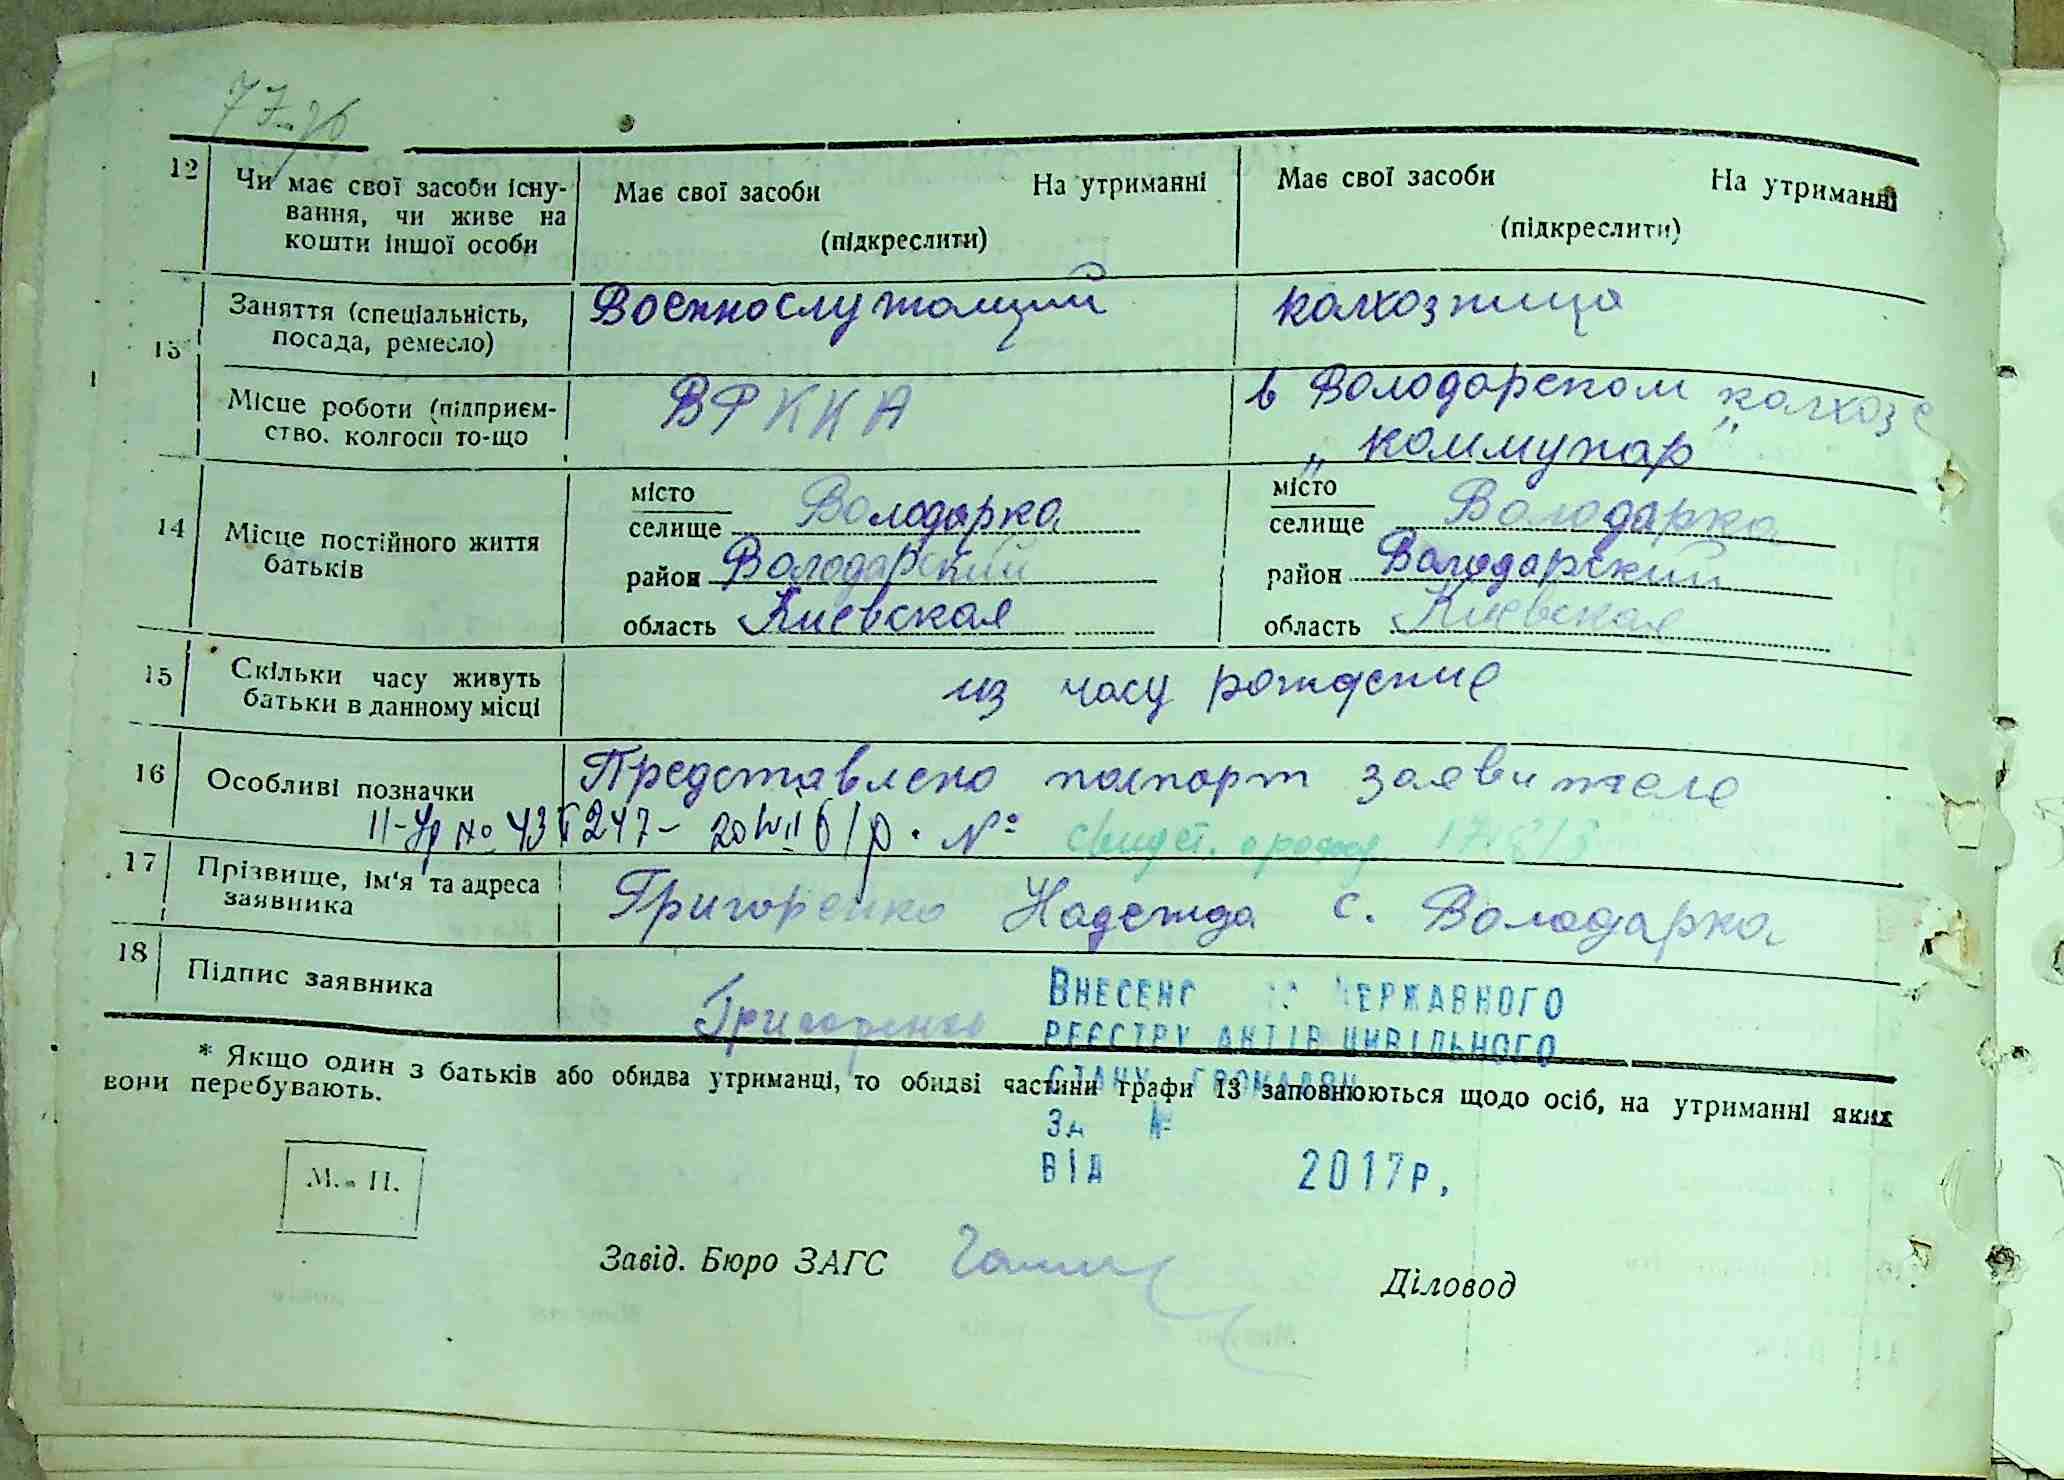 12 Чи має свої засоби існу- Має свої засоби На утриманні Має свої засоби На утриманні
вання, чи живе на (підкреслити) (підкреслити)
кошти іншої особи
13 Заняття (спеціальність, Военнослужащий колхозница
посада, ремесло)
Місце роботи (підприєм- В РККА в Володарском колхозе
ство, колгосп то-що „коммунар"
14 Місце постійного життя батьків
місто
селище Володарка
район Володарский
область Киевская
місто
селище Володарка
район Володарский
область Киевская
15 Скільки часу живуть из часу рождение
батьки в данному місці
16 Особливі позначки Представлено паспорт заявителе
№ свидет. о рожд
17 Прізвище, ім'я та адреса Григоренко Надежда с. Володарка
заявника
18 Підпис заявника Григоренко
ВНЕСЕНО ДЕРЖАВНОГО
РЕЄСТРУ АКТІВ ЦИВІЛЬНОГО
СТАНУ ГРОМАДЯН
ЗА №
ВІД 2017р.
* Якщо один з батьків або обидва утриманці, то обидві частини графи 13 заповнюються щодо осіб, на утриманні яких
вони перебувають.
М. П.
Завід. Бюро ЗАГС Діловод